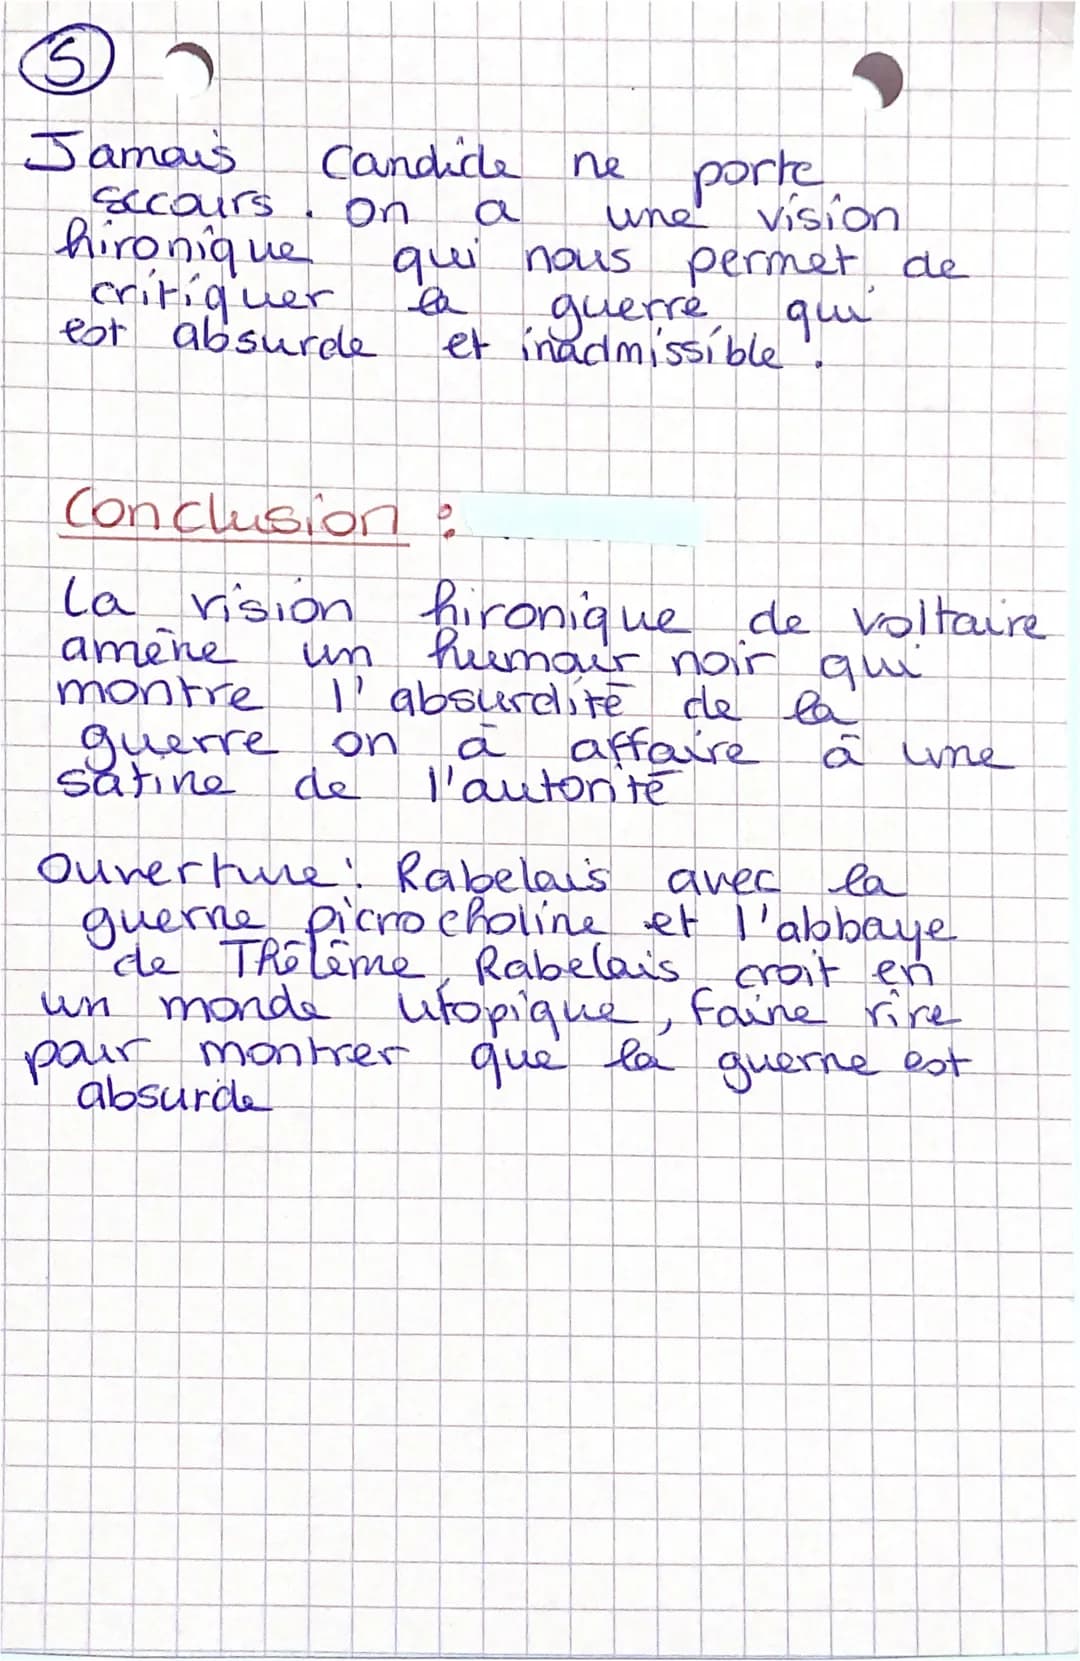 5
Jamais Candide ne porte
secours. On a une vision
hironique qui nous permet de
critiquer la guerre qui
est absurde et inadmissible.
Conclusion :
La vision hironique de Voltaire
amène un humour noir qui
montre l'absurdité de la
guerre on à affaire à une
satire de l'autorité
Ouverture : Rabelais avec la
guerre picrocholine et l'abbaye
de Thélème, Rabelais croit en
un monde utopique, faire rire
pour montrer que la guerre est
absurde